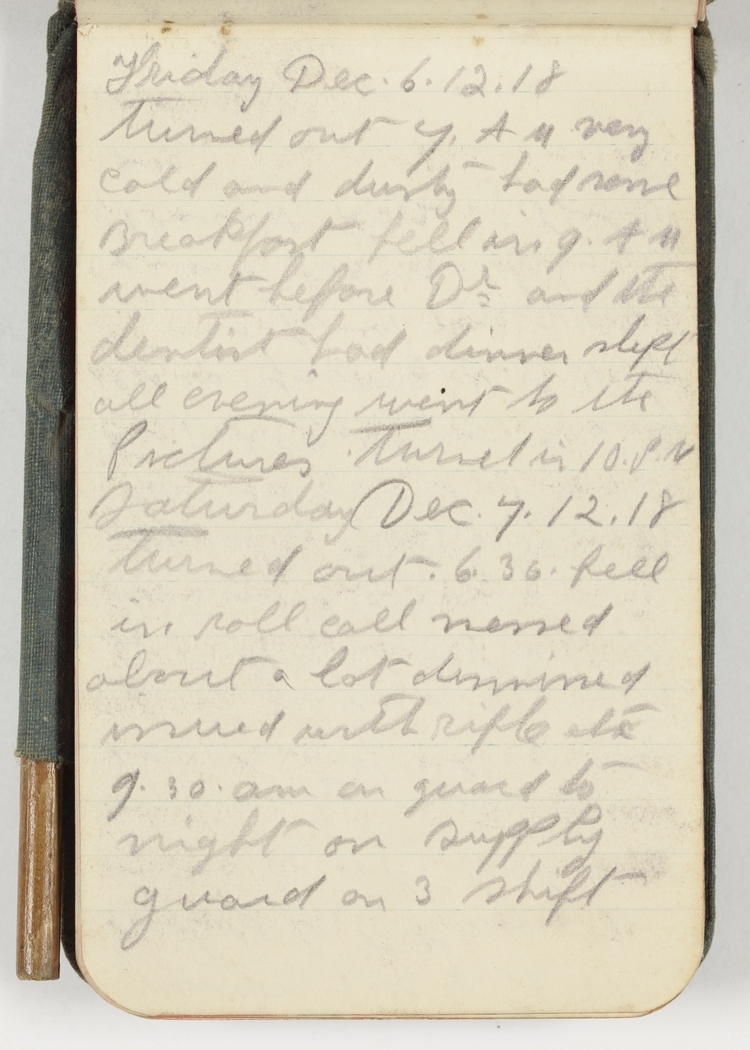 Friday Dec. 6.12.18
turned out 7. A M very
cold and dusty had some
Breakfast fell in 9. A M
went before Dr and the
dentist had dinner slept
all evening went to the
Pictures. Turned in 10.P.M
Saturday Dec. 7.12.18
turned out. 6.30. fell
in roll call messed
about a lot dismissed
issued with rifle etc
9.30. am on guard to
night on supply
guard on 3 shift